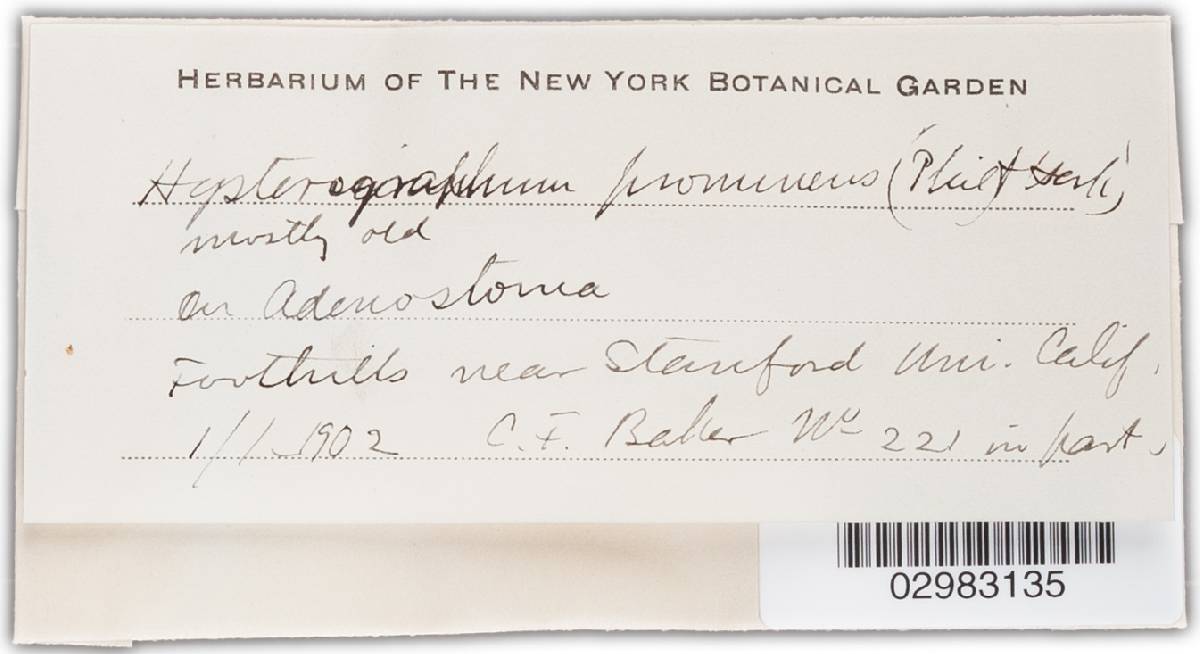 HERBARIUM OF THE NEW YORK BOTANICAL GARDEN
Hysterographium prominens (Phil & Hark)
mostly old
on Adenostoma
Foothills near Stanford Uni. Calif.
1/1 1902 C. F. Baker No 221 in part.
02983135